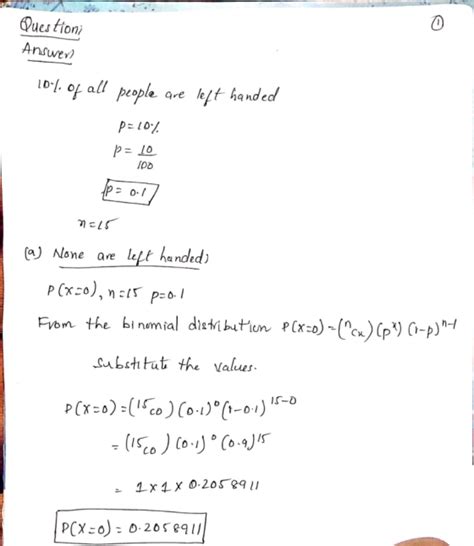 ①
Question;
Answer;
10% of all people are left handed
p = 10%
p = 10/100
p = 0.1
n = 15
(a) None are left handed;
P(X=0), n=15 p=0.1
From the binomial distribution P(X=0) = (ⁿCx) (pˣ) (1-p)ⁿ⁻¹
Substitute the values.
P(X=0) = (¹⁵C0) (0.1)⁰ (1-0.1)¹⁵⁻⁰
= (15C0) (0.1)⁰ (0.9)¹⁵
= 1 x 1 x 0.2058911
P(X=0) = 0.2058911